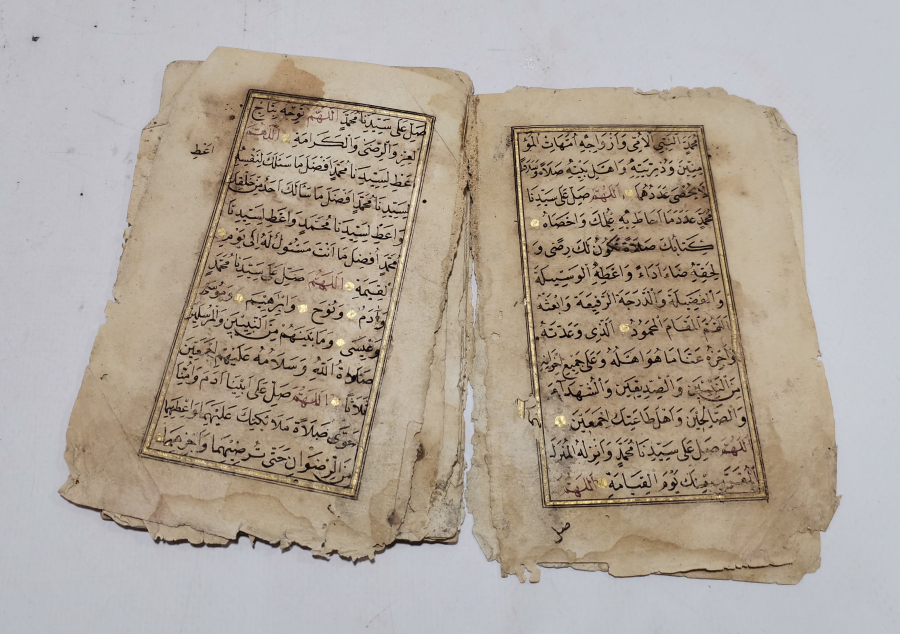 محمد النبي الامي وازواجه امهات المؤ
منين وذريته واهل بيته صلاة وسلاما
لا يحصى عددهما اللهم صل على سيدنا
محمد عدد ما احاط به علمك واحصاه
كتابك صلاة تكون لك رضى و
لحقه اداء واعطه الوسيلة
والفضيلة والدرجة الرفيعة وابعثه
اللهم المقام المحمود الذي وعدته
واجزه عنا ما هو اهله وعلى جميع اخوانه
من النبيين والصديقين والشهداء
والصالحين واهل طاعتك اجمعين
اللهم صل على سيدنا محمد وانزله المنزل
المقرب منك يوم القيامة اللهم
صل
صل على سيدنا محمد اللهم توجه بتاج
العز والرضى والكرامة اللهم
اعط
عط لسيدنا محمد افضل ما سئلك لنفسه
لسيدنا محمد افضل ما سالك احد من خلقك
واعط لسيدنا محمد واعط لسيدنا
محمد افضل ما انت مسئول له الى يوم
القيمة اللهم صل على سيدنا محمد
وادم ونوح وابرهيم وموسى
وعيسى وما بينهم من النبيين والمرسلين
صلوات الله وسلامه عليهم اجمعين
ثلاثا اللهم صل على ابينا ادم وامنا
حوى صلاة ملائكتك عليهما واعطهما
من الرضوان حتى ترضيهما واجزهما